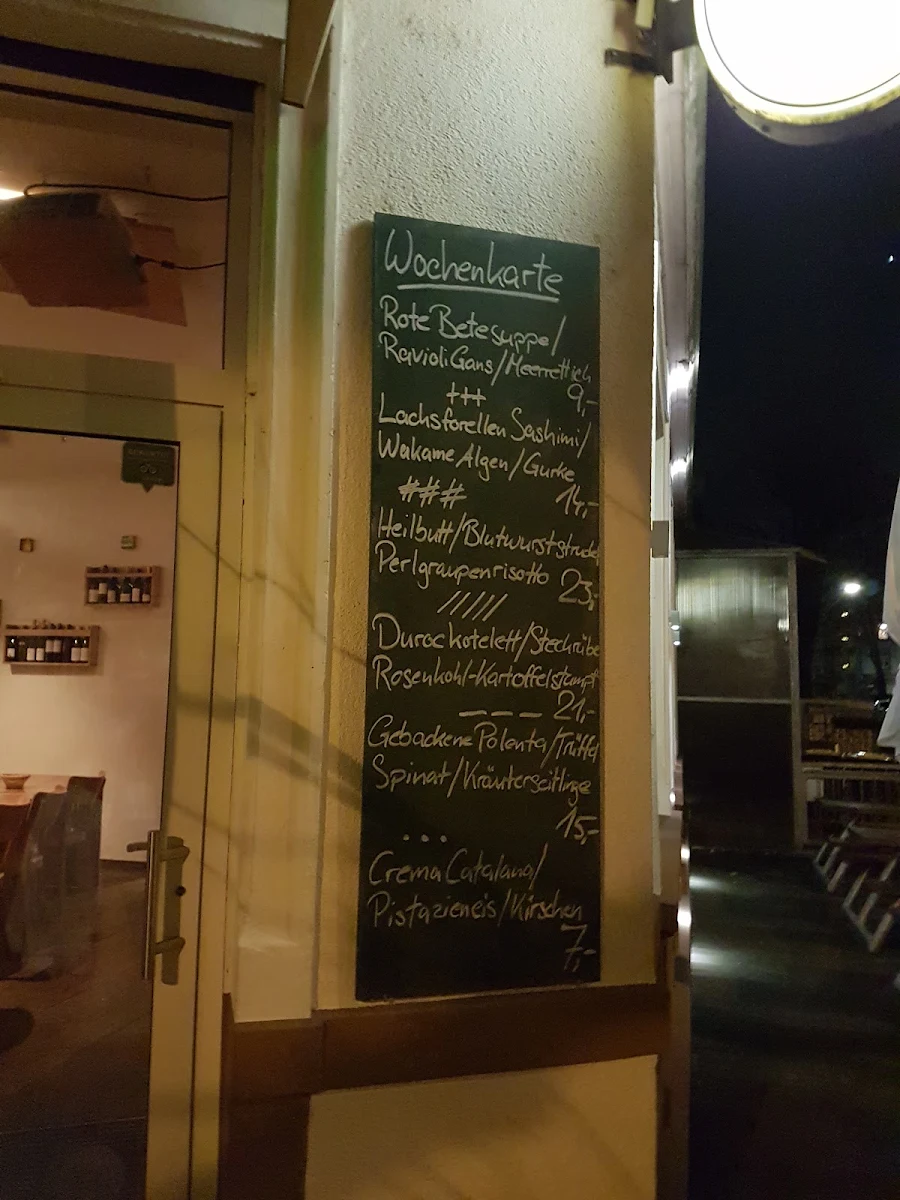 Wochenkarte
Rote Betesuppe/
Ravioli Gans/Meerrettich
9,-
+++
Lachsforellen Sashimi/
Wakame Algen/Gurke
14,-
###
Heilbutt/Blutwurststrudel
Perlgraupenrisotto 23,-
/////
Duroc kotelett/Steckrübe
Rosenkohl-Kartoffelstampf
--- 21,-
Gebackene Polenta/Trüffel
Spinat/Kräuterseitlinge
15,-
...
Crema Catalana/
Pistazieneis/Kirschen
7,-